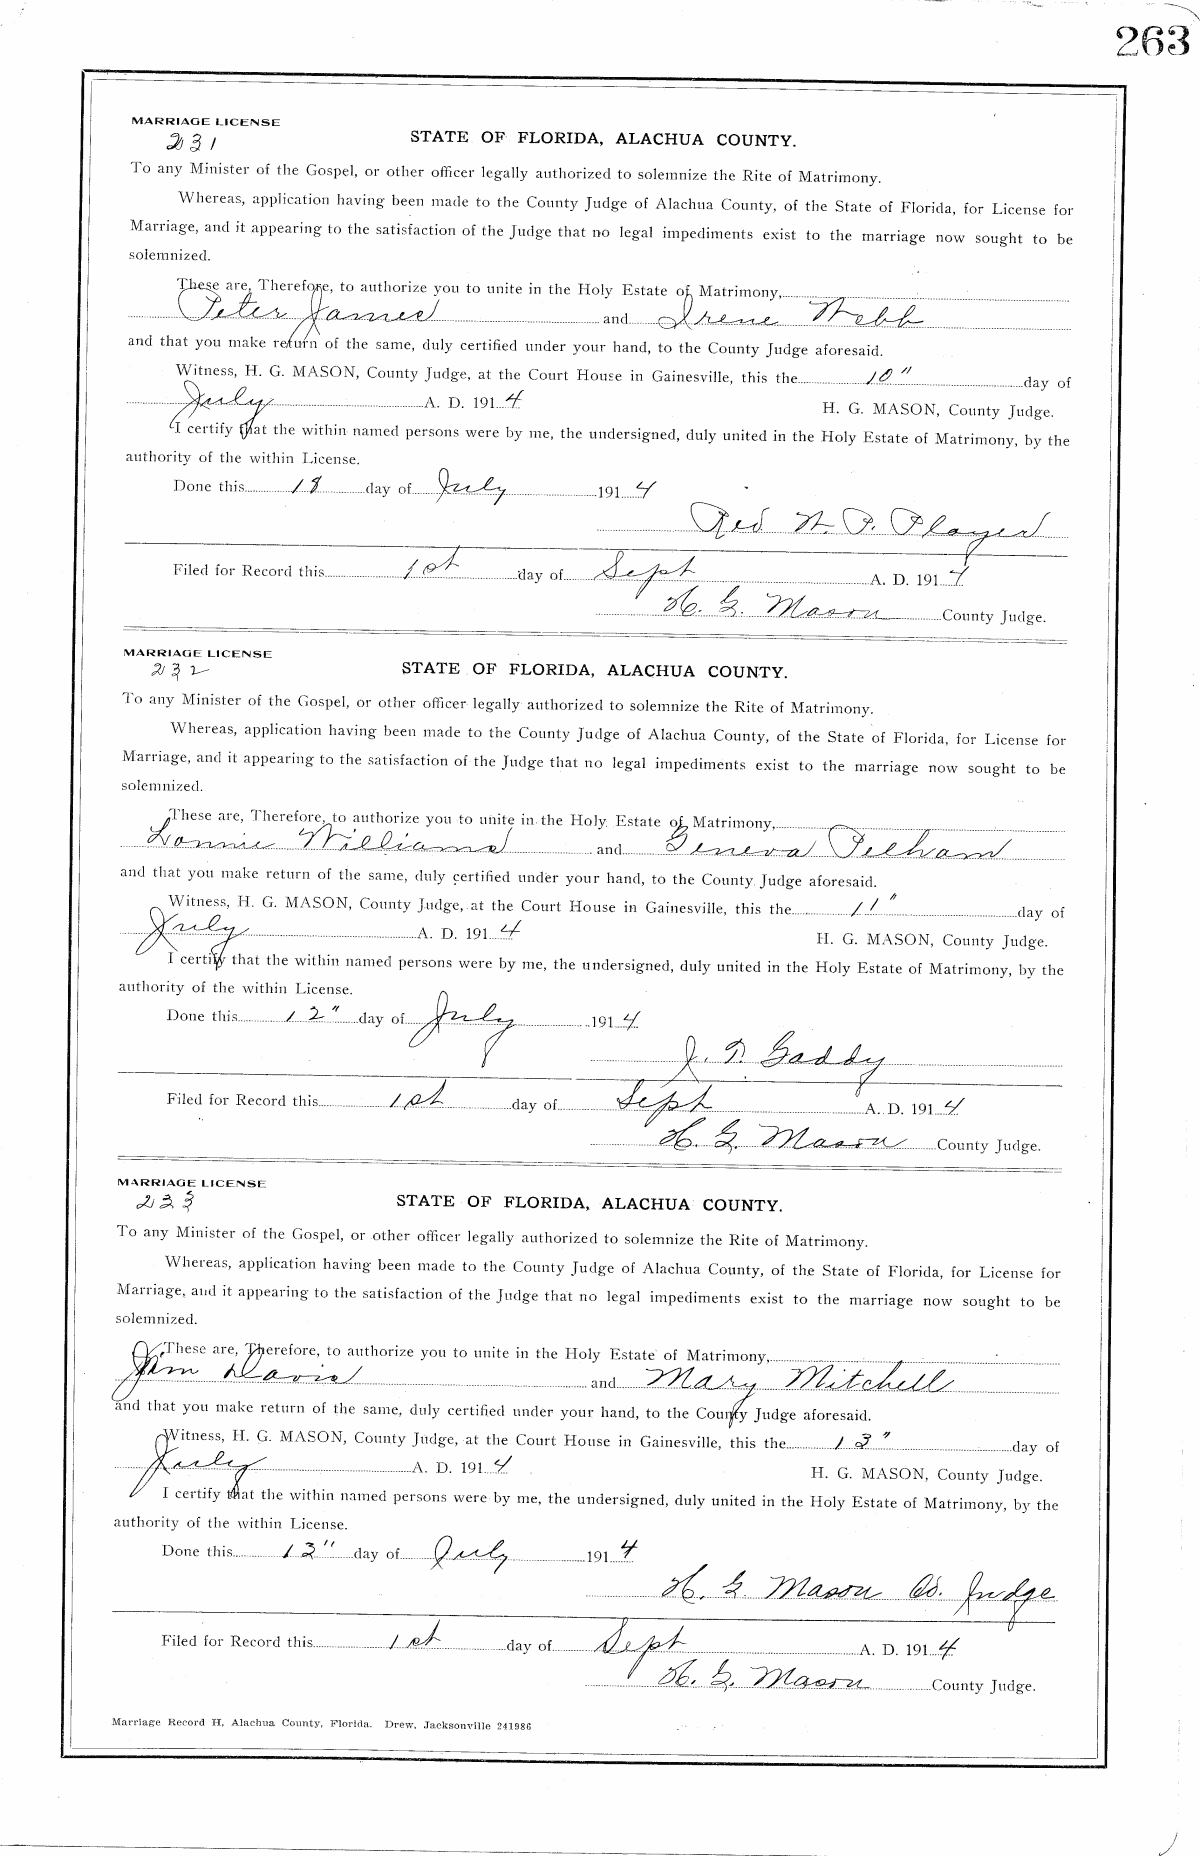 263
MARRIAGE LICENSE
231
STATE OF FLORIDA, ALACHUA COUNTY.
To any Minister of the Gospel, or other officer legally authorized to solemnize the Rite of Matrimony.
Whereas, application having been made to the County Judge of Alachua County, of the State of Florida, for License for
Marriage, and it appearing to the satisfaction of the Judge that no legal impediments exist to the marriage now sought to be
solemnized.
These are, Therefore, to authorize you to unite in the Holy Estate of Matrimony,
Peter James and Irene Webb
and that you make return of the same, duly certified under your hand, to the County Judge aforesaid.
Witness, H. G. MASON, County Judge, at the Court House in Gainesville, this the 10" day of
July A. D. 1914 H. G. MASON, County Judge.
I certify that the within named persons were by me, the undersigned, duly united in the Holy Estate of Matrimony, by the
authority of the within License.
Done this 18 day of July 1914
Rev W. P. Player
Filed for Record this 1st day of Sept A. D. 1914
H. G. Mason County Judge.
MARRIAGE LICENSE
232
STATE OF FLORIDA, ALACHUA COUNTY.
To any Minister of the Gospel, or other officer legally authorized to solemnize the Rite of Matrimony.
Whereas, application having been made to the County Judge of Alachua County, of the State of Florida, for License for
Marriage, and it appearing to the satisfaction of the Judge that no legal impediments exist to the marriage now sought to be
solemnized.
These are, Therefore, to authorize you to unite in the Holy Estate of Matrimony,
Lonnie Williams and Geneva Pelham
and that you make return of the same, duly certified under your hand, to the County Judge aforesaid.
Witness, H. G. MASON, County Judge, at the Court House in Gainesville, this the 11" day of
July A. D. 1914 H. G. MASON, County Judge.
I certify that the within named persons were by me, the undersigned, duly united in the Holy Estate of Matrimony, by the
authority of the within License.
Done this 12" day of July 1914
J. T. Gaddy
Filed for Record this 1st day of Sept A. D. 1914
H. G. Mason County Judge.
MARRIAGE LICENSE
233
STATE OF FLORIDA, ALACHUA COUNTY.
To any Minister of the Gospel, or other officer legally authorized to solemnize the Rite of Matrimony.
Whereas, application having been made to the County Judge of Alachua County, of the State of Florida, for License for
Marriage, and it appearing to the satisfaction of the Judge that no legal impediments exist to the marriage now sought to be
solemnized.
These are, Therefore, to authorize you to unite in the Holy Estate of Matrimony,
Jim Davis and Mary Mitchell
and that you make return of the same, duly certified under your hand, to the County Judge aforesaid.
Witness, H. G. MASON, County Judge, at the Court House in Gainesville, this the 13" day of
July A. D. 1914 H. G. MASON, County Judge.
I certify that the within named persons were by me, the undersigned, duly united in the Holy Estate of Matrimony, by the
authority of the within License.
Done this 13" day of July 1914
H. G. Mason Co. Judge
Filed for Record this 1st day of Sept A. D. 1914
H. G. Mason County Judge.
Marriage Record H, Alachua County, Florida. Drew, Jacksonville 241986